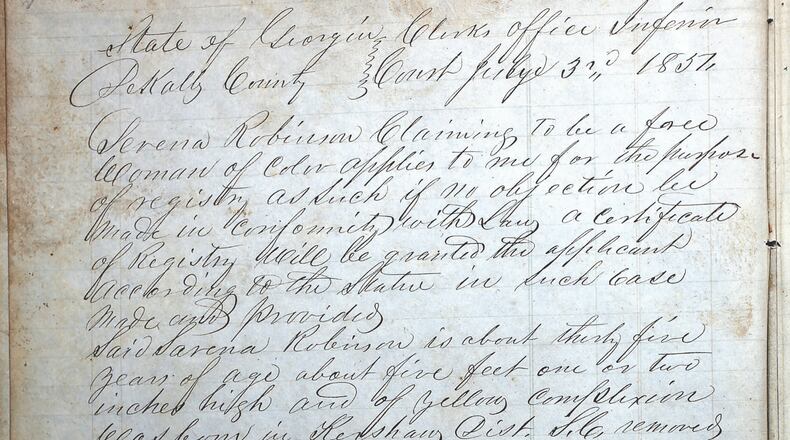 State of Georgia } Clerks office Inferior
DeKalb County } Court July 3rd 1851
Serena Robinson Claiming to be a free
Woman of Color applies to me for the purpose
of registry as such if no objection be
made in Conformity with Law a certificate
of Registry Will be granted the applicant
according to the Statue in such Case
Made and Provided
Said Sarena Robinson is about thirty five
years of age about five feet one or two
inches high and of yellow complexion
Was born in Kershaw Dist. S.C. removed